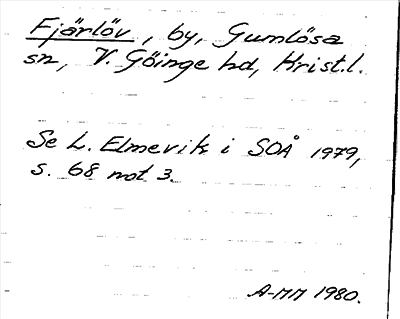 Fjärlöv, by, Gumlösa
sn, V. Göinge hd, Krist.l.
Se L. Elmevik i SOÅ 1979,
s. 68 not 3.
A-MM 1980.